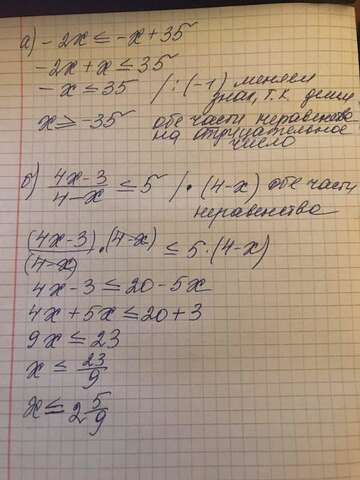 а) -2x ≤ -x + 35
-2x + x ≤ 35
-x ≤ 35 /:(-1) меняем
знак, т.к делим
x ≥ -35 обе части неравенство
на отрицательное
число
б) (4x-3)/(4-x) ≤ 5 /·(4-x) обе части
неравенство
(4x-3)·(4-x)/(4-x) ≤ 5·(4-x)
4x-3 ≤ 20-5x
4x+5x ≤ 20+3
9x ≤ 23
x ≤ 23/9
x ≤ 2 5/9